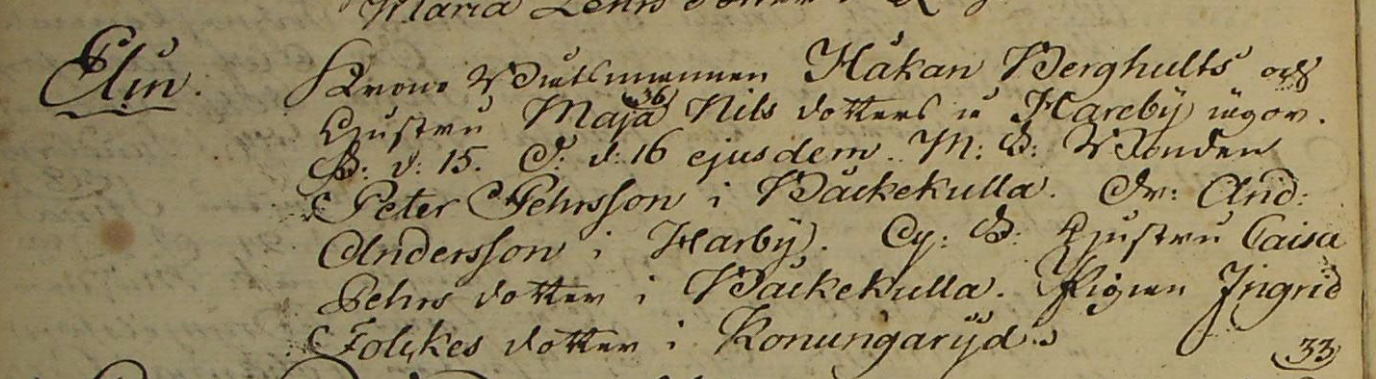 Maria
Elin. Krono Båtsmannen Håkan Berghults och
36
Hustru Maja Nils dotters i Hareby ägor.
B: d: 15. C. d: 16 ejusdem. M: B: Bonden
Peter Pehrsson i Bäckekulla. Dr: And:
Andersson i Harby. Qv: B: Hustru Caisa
Pehrs dotter i Bäckekulla. Pigan Ingrid
Folckes dotter i Konungaryd.
33